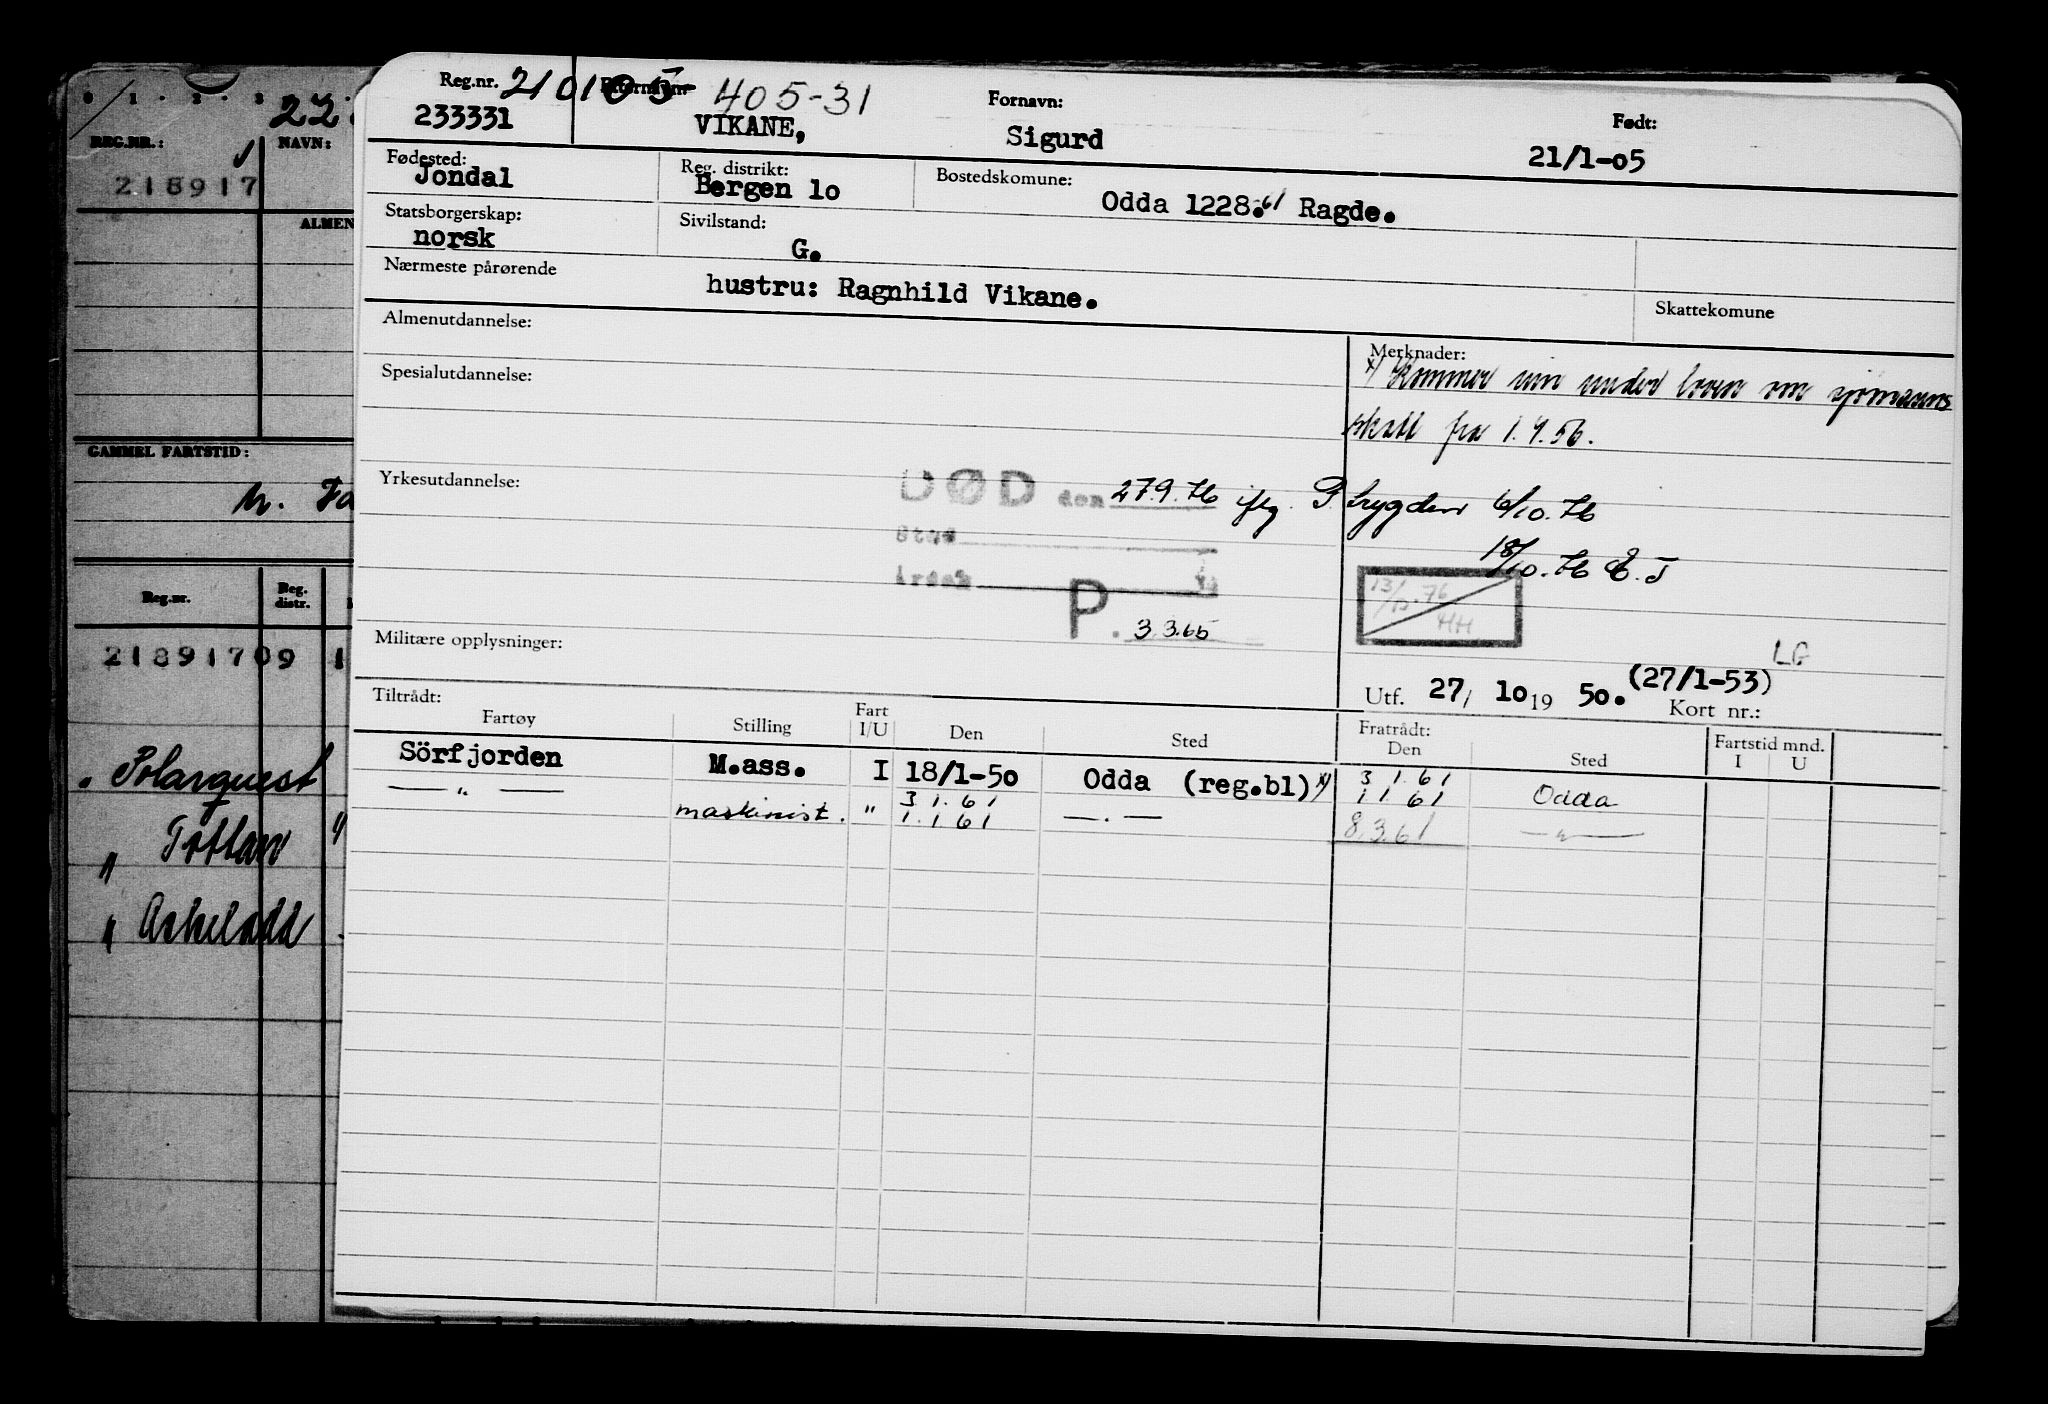 0 1 . 2 . 3
REG.NR.: NAVN:
218917
ALMEN
GAMMEL FARTSTID:
Reg.nr. Reg. distr.
21891709 1
" Polarquest
" Tottan
" Askeladd
Reg.nr. 210105 405-31 Fornavn: Født:
233331 VIKANE, Sigurd 21/1-05
Fødested: Reg. distrikt: Bostedskomune:
Jondal Bergen lo Odda 1228.61 Ragde.
Statsborgerskap: Sivilstand:
norsk G.
Nærmeste pårørende
hustru: Ragnhild Vikane.
Skattekomune
Almenutdannelse:
Merknader:
x) Kommer inn under loven om sjømanns
skatt fra 1.4.56.
Spesialutdannelse:
Yrkesutdannelse:
DØD den 27.9.76 iflg. P.trygden 6/10.76
Sted
18/10.76 E.T
Årsak
13/12.76
HH
P. 3.3.65
Militære opplysninger:
LG
Utf. 27/ 10 19 50. (27/1-53)
Kort nr.:
Tiltrådt: Fratrådt:
Fartøy Stilling Fart I/U Den Sted Den Sted Fartstid mnd. I U
Sörfjorden M.ass. I 18/1-50 Odda (reg.bl) x) 3.1.61
— " — 3.1.61 1.1.61 Odda
maskinist. " 1.1.61 — . — 8.3.61 — " —